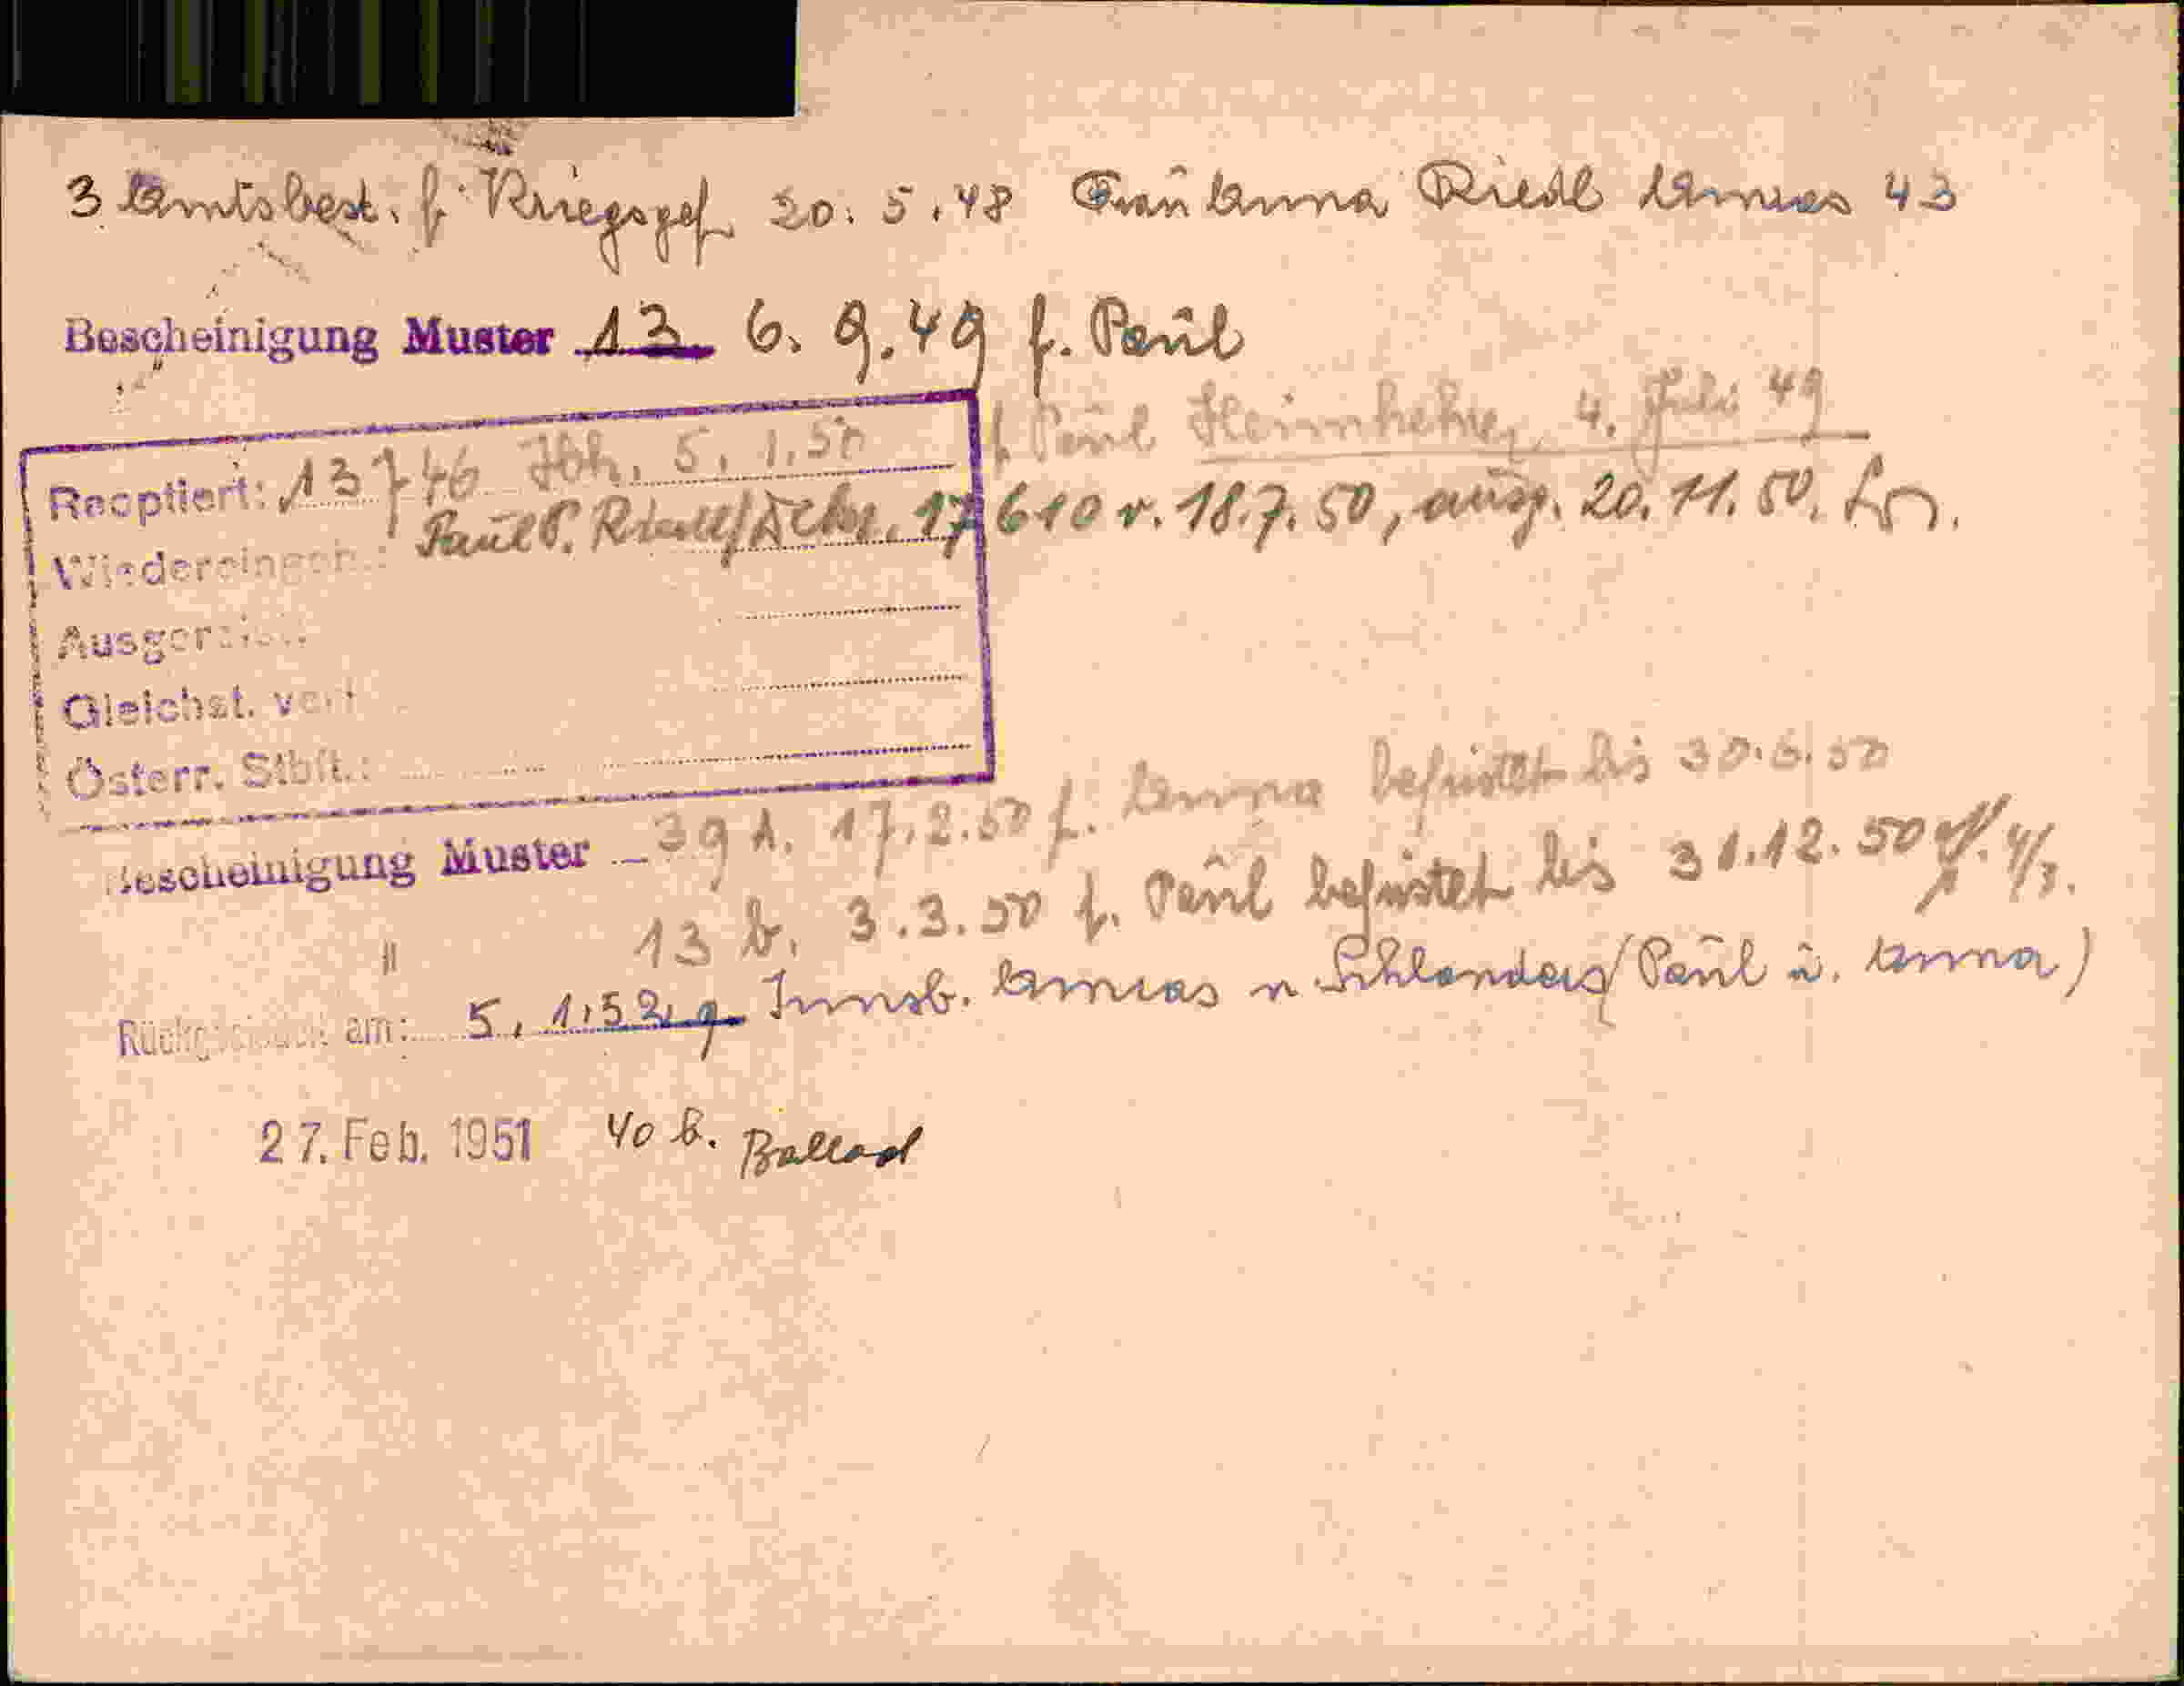 3 Amtsbest. f. Kriegsgef. 20. 5. 48 Frau Anna Riedl Amras 43
Bescheinigung Muster 13 6. 9. 49 f. Paul
f. Paul Heimkehrer 4. Juli 49
Reoptiert: 13746 5. 1. 50
Paul 17610 v. 18.7.50, ausg. 20.11.50.
Wiedereingeb.:
Ausgereist:
Gleichst. verl.
Österr. Stbft.:
Bescheinigung Muster 39 A. 17.2.50 f. Anna befristet bis 30.6.50
" 13 b. 3.3.50 f. Paul befristet bis 31.12.50
Rückgesiedelt am: 5. 1. 52 Innsb. Amras n Schlanders (Paul u. Anna)
27. Feb. 1951 40 b.